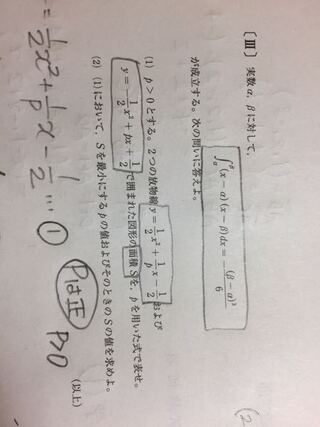 〔Ⅲ〕 実数α, βに対して,
∫_α^β (x−α)(x−β)dx = −(β−α)³/6
が成立する。次の問いに答えよ。
(1) p>0とする。2つの放物線 y=1/2x²+1/px−1/2 および
y=−1/2x²+px+1/2 で囲まれた図形の面積Sを, pを用いた式で表せ。
(2) (1)において, Sを最小にするpの値およびそのときのSの値を求めよ。
(以上)
=1/2x²+1/px−1/2…①
Pは正
P>0
(2